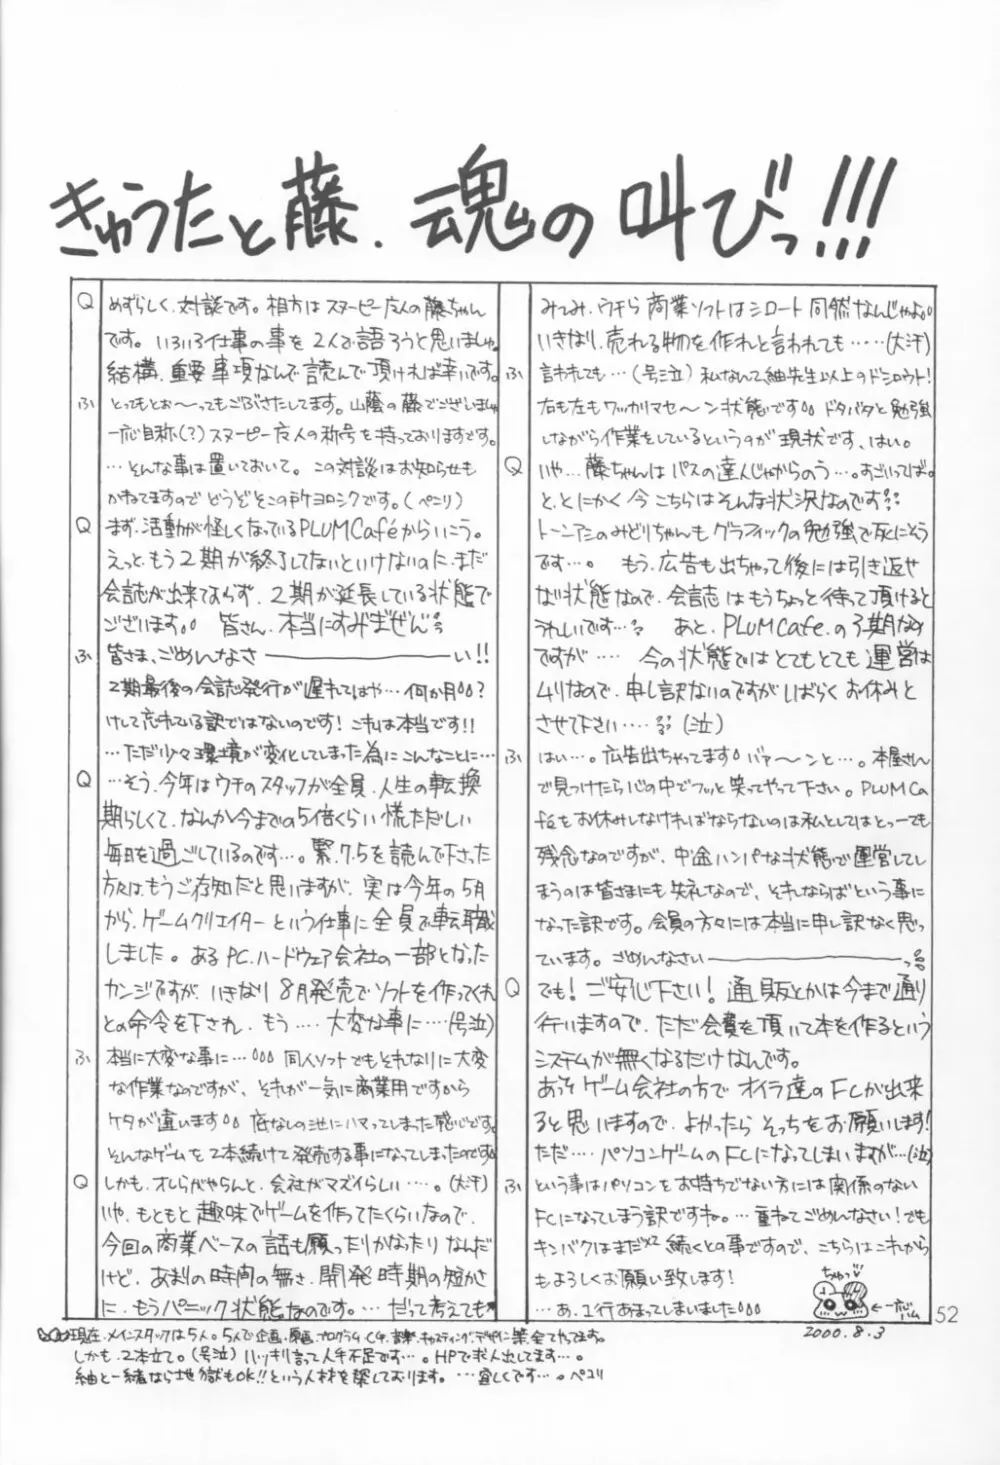 きゅうたと藤.魂の叫びっ!!!
Q めずらしく、対談です。相方はスヌーピー友人の藤ちゃん
です。いろいろ仕事の事を2人で語ろうと思いましゅ。
結構、重要事項なんで読んで頂ければ幸いです。
ふ とってもとお〜ってもごぶさたしてます。山蔭の藤でございましゅ
一応自称(?)スヌーピー友人の称号を持っておりますです。
…そんな事は置いておいて。この対談はお知らせも
かねてますのでどうぞそこの所ヨロシクです。(ペこリ)
Q まず、活動が怪しくなっているPLUM Caféからいこう。
えっと、もう2期が終了してないといけないのに、まだ
会誌が出来ておらず、2期が延長している状態で
ございます。。皆さん、本当にすみませぬ
ふ 皆さま、ごめんなさ――――い!!
2期最後の会誌発行が遅れてはや…何か月。。?
けして忘れている訳ではないのです!これは本当です!!
…ただ少々環境が変化してしまった為にこんなことに…
Q …そう、今年はウチのスタッフが全員、人生の転換
期らしくて、なんか今までの5倍くらい慌ただしい
毎日を過ごしているのです…。緊.7.5を読んで下さった
方々は、もうご存知だと思いますが、実は今年の5月
から、ゲームクリエイターという仕事に全員で転職
しました。あるPC.ハードウェア会社の一部となった
カンジですが、いきなり8月発売でソフトを作ってくれ
との命令を下され、もう‥‥大変な事に‥‥(号泣)
ふ 本当に大変な事に…。。。同人ソフトでもそれなりに大変
な作業なのですが、それが一気に商業用ですから
ケタが違います。。底なしの池にハマってしまった感じです。
そんなゲームを2本続けて発売する事になってしまったのです。
Q しかも、オレらがやらんと、会社がマズイらしい‥‥。(大汗)
いや、もともと趣味でゲームを作ってたくらいなので、
今回の商業ベースの話も願ったりかなったりなんだ
けど、あまりの時間の無さ、開発時期の短かさ
に、もうパニック状態なのです。…だって考えても
みてみ、ウチら商業ソフトはシロート同然なんじゃよ。。
いきなり、売れる物を作れと言われても‥‥‥(大汗)
ふ 言われても…(号泣)私なんて紬先生以上のドシロウト!
右も左もワッカリマセ〜ン状態です。。ドタバタと勉強
しながら作業をしているというのが現状です、はい。
Q いや…藤ちゃんはパスの達人じゃからのう…。すごいってば。
と、とにかく今こちらはそんな状況なのです
トーンアシのみどりちゃんもグラフィックの勉強で死にそう
です…。もう、広告も出ちゃって後には引き返せ
ない状態なので、会誌はもうちょっと待って頂けると
うれしいです… あと、PLUM Cafe.の3期なの
ですが‥‥今の状態ではとてもとても運営は
ムリなので、申し訳ないのですがしばらくお休みと
させて下さい‥‥(泣)
ふ はい…。広告出ちゃってます。。バァ〜ンと…。本屋さん
で見つけたら心の中でフッと笑ってやって下さい。PLUM Ca
féをお休みしなければならないのは私としてはとっーても
残念なのですが、中途ハンパな状態で運営してし
まうのは皆さまにも失礼なので、それならばという事に
なった訳です。会員の方々には本当に申し訳なく思っ
ています。ごめんなさい――――っ
Q でも!ご安心下さい!通販とかは今まで通り
行いますので、ただ会費を頂いて本を作るという
システムが無くなるだけなんです。
あっそゲーム会社の方でオイラ達のFCが出来
ると思いますので、よかったらそっちをお願いします!
ただ‥‥パソコンゲームのFCになってしまいますが…(泣)
ふ という事はパソコンをお持ちでない方には関係のない
FCになってしまう訳ですね。…重ねてごめんなさい!でも
キンバクはまだまだ続くとの事ですので、こちらはこれから
もよろしくお願い致します!
…あ、1行あまってしまいました。。。
ちゅっ
←一応ハム
2000.8.3
52
現在、メインスタッフは5人。5人で企画・原画・プログラム・CG・音楽・キャスティング・デザインに営業、全てやってます。
しかも、2本立て。(号泣)ハッキリ言って人手不足です…。HPで求人出してます…。
紬と一緒なら地獄もOK!!という人材を募しております。…宜しくです…。ペコリ